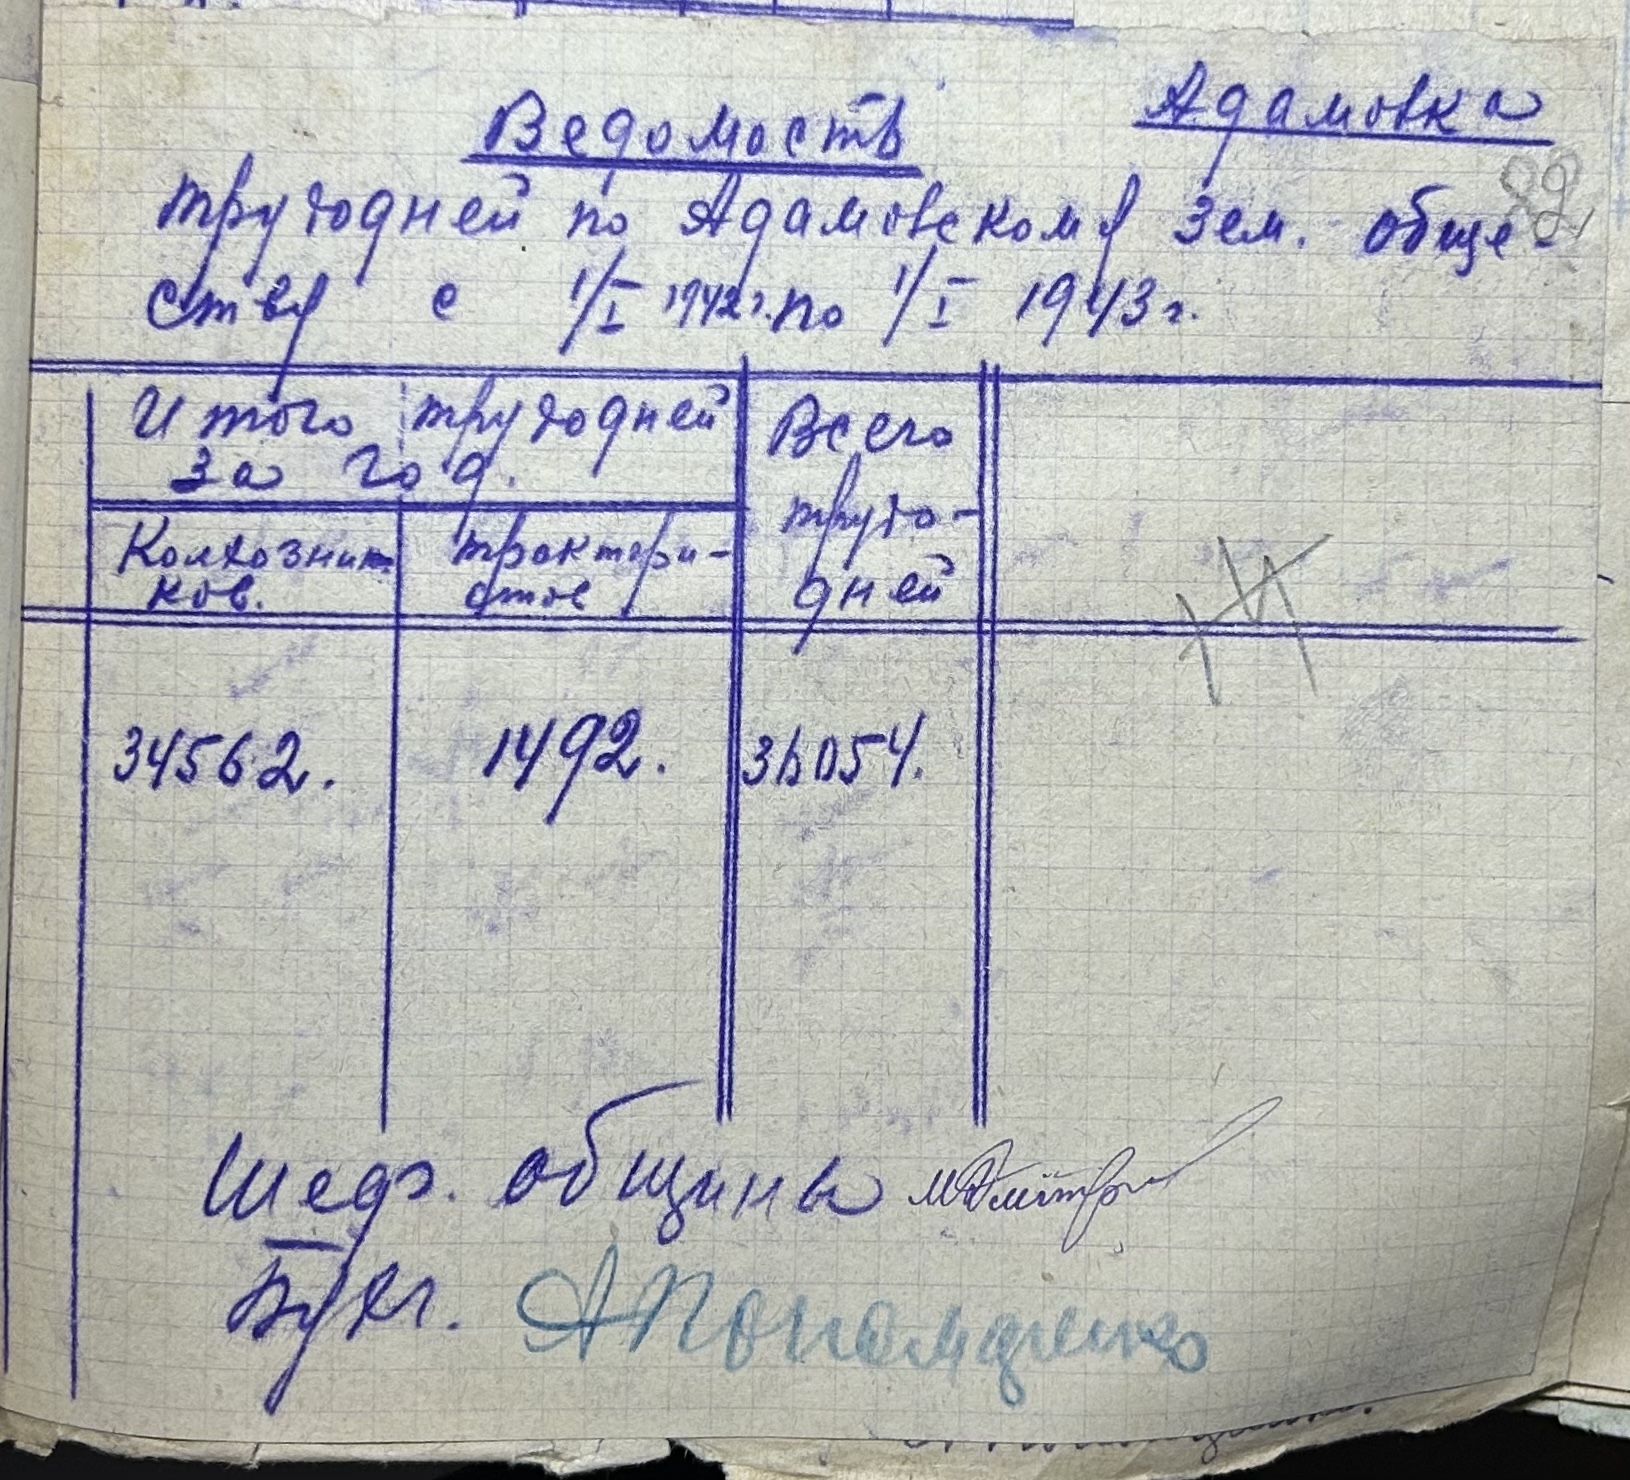 Адамовка
Ведомость
89
трудодней по Адамовскому зем. обще-
ству с 1/I 1942г. по 1/I 1943 г.
Итого трудодней
за год.
Всего
трудо-
дней
Колхозни-
ков.
трактори-
стов
34562.
1492.
36054.
Шедз. общины
Бухг. АПономаренко